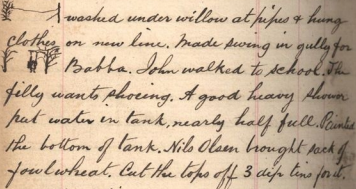 washed under willow at pipes & hung
clothes on new line. Made swing in gully for
Babba. John walked to school. The
filly wants shoeing. A good heavy shower
put water in tank, nearly half full. Painted
the bottom of tank. Nils Olsen brought sack of
fowl wheat. Cut the tops off 3 dip tins for